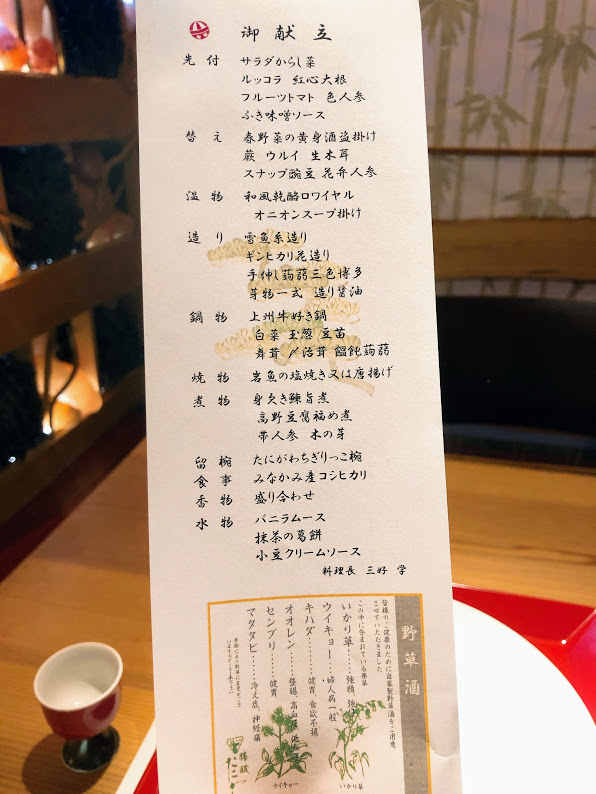 御献立
先付 サラダからし菜
ルッコラ 紅心大根
フルーツトマト 色人参
ふき味噌ソース
替え 春野菜の黄身酒盗掛け
蕨 ウルイ 生木耳
スナップ豌豆 花弁人参
温物 和風乾酪ロワイヤル
オニオンスープ掛け
造り 雪魚糸造り
ギンヒカリ花造り
手伸し蒟蒻三色博多
芽物一式 造り醤油
鍋物 上州牛好き鍋
白菜 玉葱 豆苗
舞茸 〆治茸 饂飩蒟蒻
焼物 岩魚の塩焼き又は唐揚げ
煮物 身欠き鰊旨煮
高野豆腐福め煮
帯人参 木の芽
留椀 たにがわちぎりっこ椀
食事 みなかみ産コシヒカリ
香物 盛り合わせ
水物 バニラムース
抹茶の葛餅
小豆クリームソース
料理長 三好 学
野草酒
皆様のご健康のために自家製野草酒をご用意
させていただきました
この中に含まれている薬草
いかり草……強精
ウイキョー……婦人病一般
キハダ……健胃、食欲不振
オオレン……整腸、高血圧
センブリ……健胃
マタタビ……冷え症、神経痛
ウイキョー
いかり草